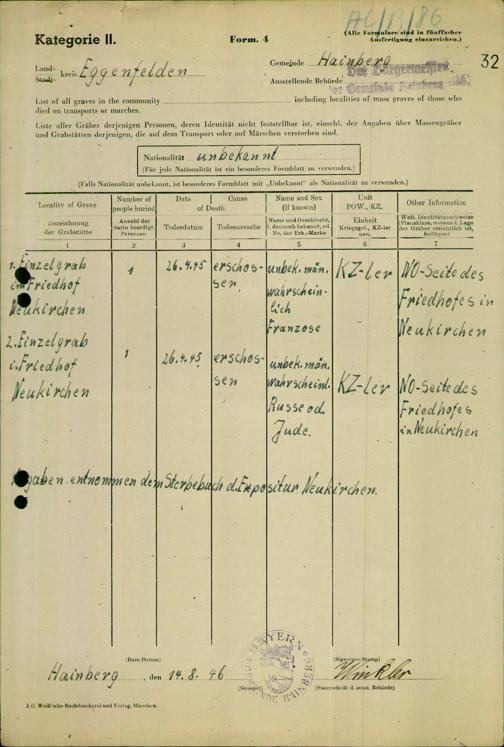 AC/B/86
Kategorie II.
Form. 4
(Alle Formulare sind in fünffacher
Ausfertigung einzureichen.)
32
Land-
Stadt-
kreis Eggenfelden
Gemeinde Hainberg
Ausstellende Behörde
Der Bürgermeister
der Gemeinde Hainberg
List of all graves in the community including localities of mass graves of those who
died on transports or marches.
Liste aller Gräber derjenigen Personen, deren Identität nicht feststellbar ist, einschl. der Angaben über Massengräber
und Grabstätten derjenigen, die auf dem Transport oder auf Märschen verstorben sind.
Nationalität unbekannt
(Für jede Nationalität ist ein besonderes Formblatt zu verwenden.)
(Falls Nationalität unbekannt, ist besonderes Formblatt mit „Unbekannt“ als Nationalität zu verwenden.)
Locality of Grave
Bezeichnung
der Grabstätte
1
Number of
people buried
Anzahl der
darin beerdigt.
Personen
2
Date
of Death
Todesdatum
3
Cause
Todesursache
4
Name and Sex
(if known)
Name und Geschlecht,
f. dennoch bekannt, od.
Nr. der Erk.-Marke
5
Unit
POW.-KZ.
Einheit
Kriegsgef., KZ-ler
usw.
6
Other Information
Weit. Identitätsnachweise
(Planskizze, woraus d. Lage
der Gräber ersichtlich ist,
beifügen)
7
1. Einzelgrab
im Friedhof
Neukirchen
1
26.4.45
erschos-
sen.
unbek. män.
wahrschein-
lich
Franzose
KZ-ler
NO-Seite des
Friedhofes in
Neukirchen
2. Einzelgrab
i. Friedhof
Neukirchen
1
26.4.45
erschos-
sen
unbek. män.
wahrscheinl.
Russe od.
Jude.
KZ-ler
NO-Seite des
Friedhofes
in Neukirchen
Angaben entnommen dem Sterbebuch d. Expositur Neukirchen.
(Date-Datum)
Hainberg, den 14.8.46
(Stempel)
BAYERN
GEMEINDE HAINBERG
(Signature-Stamp)
Winkler
(Unterschrift d. ausst. Behörde)
J. G. Weiß'sche Buchdruckerei und Verlag, München.